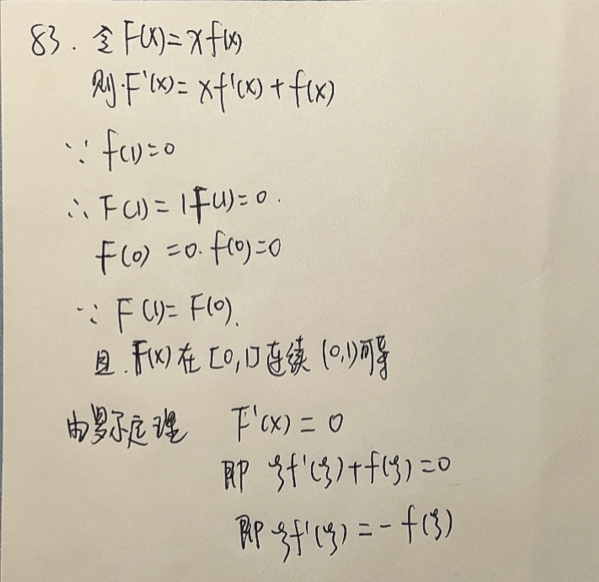 83. 令 F(x)=xf(x)
则 F'(x)=xf'(x)+f(x)
∵ f(1)=0
∴ F(1)=1f(1)=0.
F(0)=0·f(0)=0
∵ F(1)=F(0).
且 F(x)在[0,1]连续 (0,1)可导
由罗尔定理 F'(x)=0
即 ξf'(ξ)+f(ξ)=0
即 ξf'(ξ)=-f(ξ)